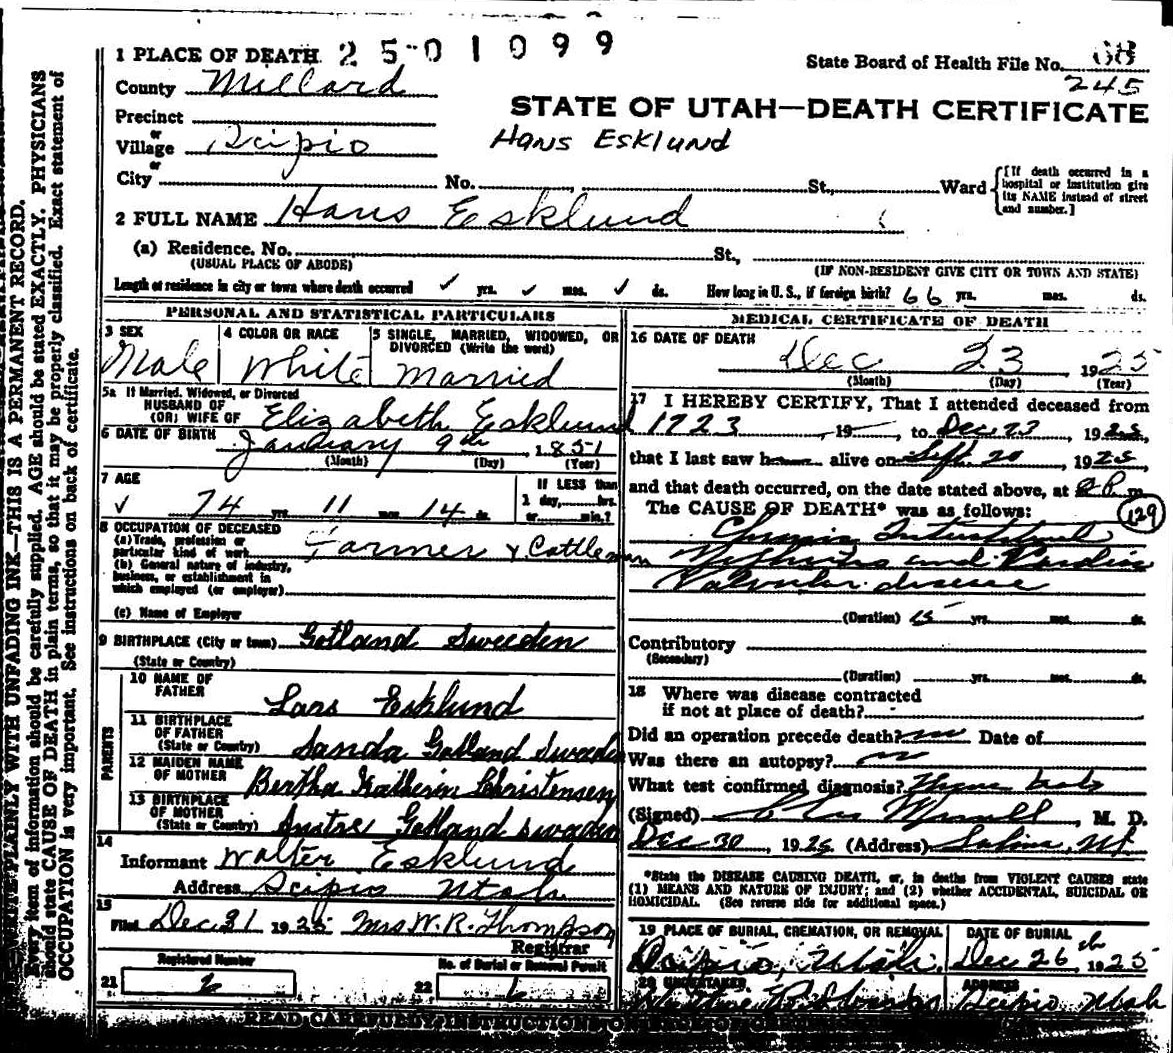 1 PLACE OF DEATH 2501099
State Board of Health File No. 68
245
County Millard
STATE OF UTAH—DEATH CERTIFICATE
Precinct
or
Village Scipio
Hans Esklund
or
City No. St., Ward
[If death occurred in a hospital or institution give its NAME instead of street and number.]
2 FULL NAME Hans Esklund
(a) Residence. No. St.,
(USUAL PLACE OF ABODE) (IF NON-RESIDENT GIVE CITY OR TOWN AND STATE)
Length of residence in city or town where death occurred ✓ yrs. ✓ mos. ✓ ds. How long in U. S., if foreign birth? 66 yrs. mos. ds.
PERSONAL AND STATISTICAL PARTICULARS
3 SEX 4 COLOR OR RACE 5 SINGLE, MARRIED, WIDOWED, OR DIVORCED (Write the word)
Male White Married
5a If Married, Widowed, or Divorced
HUSBAND OF
(OR) WIFE OF Elizabeth Esklund
6 DATE OF BIRTH January 9th, 1851
(Month) (Day) (Year)
7 AGE
✓ 74 yrs. 11 mos. 14 ds.
IF LESS than
1 day, hrs.
or min.?
8 OCCUPATION OF DECEASED
(a) Trade, profession or
particular kind of work Farmer & Cattleman
(b) General nature of industry,
business, or establishment in
which employed (or employer)
(c) Name of Employer
9 BIRTHPLACE (City or town) Gotland Sweeden
(State or Country)
PARENTS
10 NAME OF
FATHER Lars Esklund
11 BIRTHPLACE
OF FATHER
(State or Country) Sanda Gotland Sweeden
12 MAIDEN NAME
OF MOTHER Bertha Katherin Christensen
13 BIRTHPLACE
OF MOTHER
(State or Country) Gotland Sweeden
14
Informant Walter Esklund
Address Scipio Utah
15
Filed Dec 31 1925 Mrs W. R. Thompson
Registrar
Registered Number No. of Burial or Removal Permit
21 22
MEDICAL CERTIFICATE OF DEATH
16 DATE OF DEATH
Dec 23 1925
(Month) (Day) (Year)
17 I HEREBY CERTIFY, That I attended deceased from
1923, 19 , to Dec 23 1925,
that I last saw h alive on Sept. 20, 1925
and that death occurred, on the date stated above, at 2 P. m.
The CAUSE OF DEATH* was as follows: 129
Chronic Interstitial
Nephritis and Cardiac
Valvular disease
(Duration) 15 yrs. mos. ds.
Contributory
(Secondary)
(Duration) yrs. mos. ds.
18 Where was disease contracted
if not at place of death?
Did an operation precede death? no Date of
Was there an autopsy? no
What test confirmed diagnosis?
(Signed) , M. D.
Dec 30, 1925 (Address) Salina, Ut
*State the DISEASE CAUSING DEATH, or, in deaths from VIOLENT CAUSES state
(1) MEANS AND NATURE OF INJURY; and (2) whether ACCIDENTAL, SUICIDAL OR
HOMICIDAL. (See reverse side for additional space.)
19 PLACE OF BURIAL, CREMATION, OR REMOVAL DATE OF BURIAL
Scipio, Utah, Dec 26th, 1925
20 UNDERTAKER ADDRESS
Scipio Utah
READ CAREFULLY INSTRUCTIONS ON BACK OF CERTIFICATE
WRITE PLAINLY WITH UNFADING INK—THIS IS A PERMANENT RECORD.
Every item of information should be carefully supplied. AGE should be stated EXACTLY. PHYSICIANS
should state CAUSE OF DEATH in plain terms, so that it may be properly classified. Exact statement of
OCCUPATION is very important. See instructions on back of certificate.